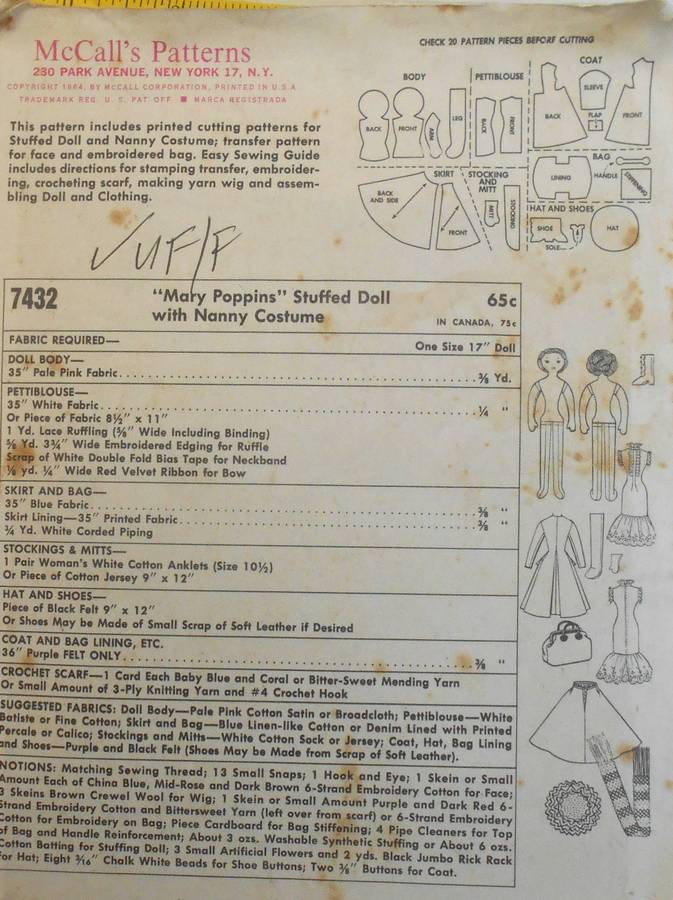 McCall's Patterns
230 PARK AVENUE, NEW YORK 17, N.Y.
COPYRIGHT 1964, BY McCALL CORPORATION, PRINTED IN U.S.A
TRADEMARK REG. U. S. PAT. OFF ■ MARCA REGISTRADA
This pattern includes printed cutting patterns for
Stuffed Doll and Nanny Costume; transfer pattern
for face and embroidered bag. Easy Sewing Guide
includes directions for stamping transfer, embroider-
ing, crocheting scarf, making yarn wig and assem-
bling Doll and Clothing.
CHECK 20 PATTERN PIECES BEFORE CUTTING
BODY
BACK
FRONT
ARM
LEG
PETTIBLOUSE
BACK
FRONT
COAT
BACK
SLEEVE
FLAP
FRONT
SKIRT
BACK
AND SIDE
FRONT
STOCKING
AND
MITT
MITT
STOCKING
BAG
LINING
HANDLE
STIFFENING
HAT AND SHOES
SHOE
SOLE
HAT
UF/F
7432
"Mary Poppins" Stuffed Doll
with Nanny Costume
65c
IN CANADA, 75c
FABRIC REQUIRED—
One Size 17" Doll
DOLL BODY—
35" Pale Pink Fabric. . . . ⅜ Yd.
PETTIBLOUSE—
35" White Fabric. . . . ¼ "
Or Piece of Fabric 8½" x 11"
1 Yd. Lace Ruffling (⅝" Wide Including Binding)
⅝ Yd. 3¾" Wide Embroidered Edging for Ruffle
Scrap of White Double Fold Bias Tape for Neckband
⅛ yd. ¼" Wide Red Velvet Ribbon for Bow
SKIRT AND BAG—
35" Blue Fabric. . . . ⅜ "
Skirt Lining—35" Printed Fabric. . . . ⅜ "
¾ Yd. White Corded Piping
STOCKINGS & MITTS—
1 Pair Woman's White Cotton Anklets (Size 10½)
Or Piece of Cotton Jersey 9" x 12"
HAT AND SHOES—
Piece of Black Felt 9" x 12"
Or Shoes May be Made of Small Scrap of Soft Leather if Desired
COAT AND BAG LINING, ETC.
36" Purple FELT ONLY. . . . ⅜ "
CROCHET SCARF—1 Card Each Baby Blue and Coral or Bitter-Sweet Mending Yarn
Or Small Amount of 3-Ply Knitting Yarn and #4 Crochet Hook
SUGGESTED FABRICS: Doll Body—Pale Pink Cotton Satin or Broadcloth; Pettiblouse—White
Batiste or Fine Cotton; Skirt and Bag—Blue Linen-like Cotton or Denim Lined with Printed
Percale or Calico; Stockings and Mitts—White Cotton Sock or Jersey; Coat, Hat, Bag Lining
and Shoes—Purple and Black Felt (Shoes May be Made from Scrap of Soft Leather).
NOTIONS: Matching Sewing Thread; 13 Small Snaps; 1 Hook and Eye; 1 Skein or Small
Amount Each of China Blue, Mid-Rose and Dark Brown 6-Strand Embroidery Cotton for Face;
3 Skeins Brown Crewel Wool for Wig; 1 Skein or Small Amount Purple and Dark Red 6-
Strand Embroidery Cotton and Bittersweet Yarn (left over from scarf) or 6-Strand Embroidery
Cotton for Embroidery on Bag; Piece Cardboard for Bag Stiffening; 4 Pipe Cleaners for Top
of Bag and Handle Reinforcement; About 3 ozs. Washable Synthetic Stuffing or About 6 ozs.
Cotton Batting for Stuffing Doll; 3 Small Artificial Flowers and 2 yds. Black Jumbo Rick Rack
for Hat; Eight 3⁄16" Chalk White Beads for Shoe Buttons; Two ⅜" Buttons for Coat.